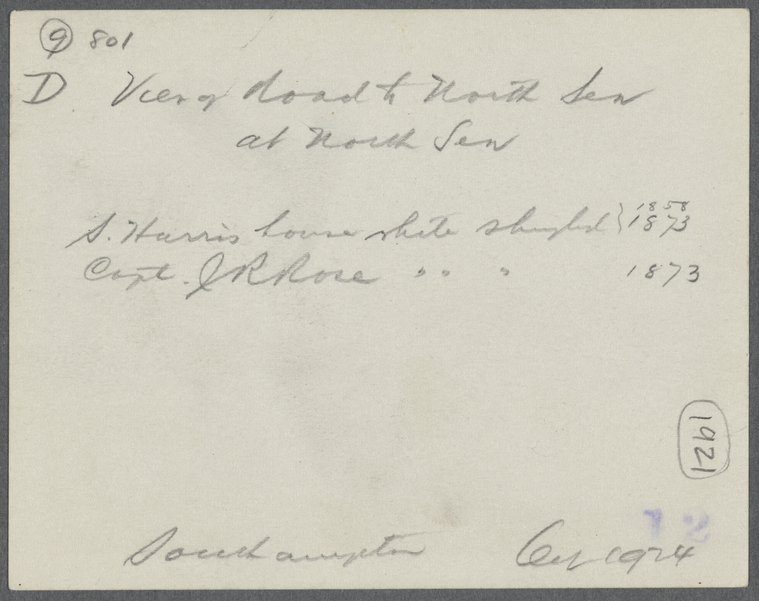 9 801
D View of Road to North Sea
at North Sea
1858
S. Harris house white shingled } 1873
Capt. J R Rose " " " 1873
1921
12
Southampton 1924